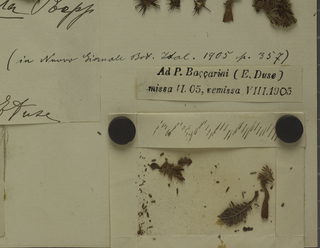 Bapp
(in Nuovo Giornale Bot. Ital. 1905 p. 357)
Ad P. Baccarini (E. Duse)
missa VI. 05, remissa VIII.1905
E. Duse